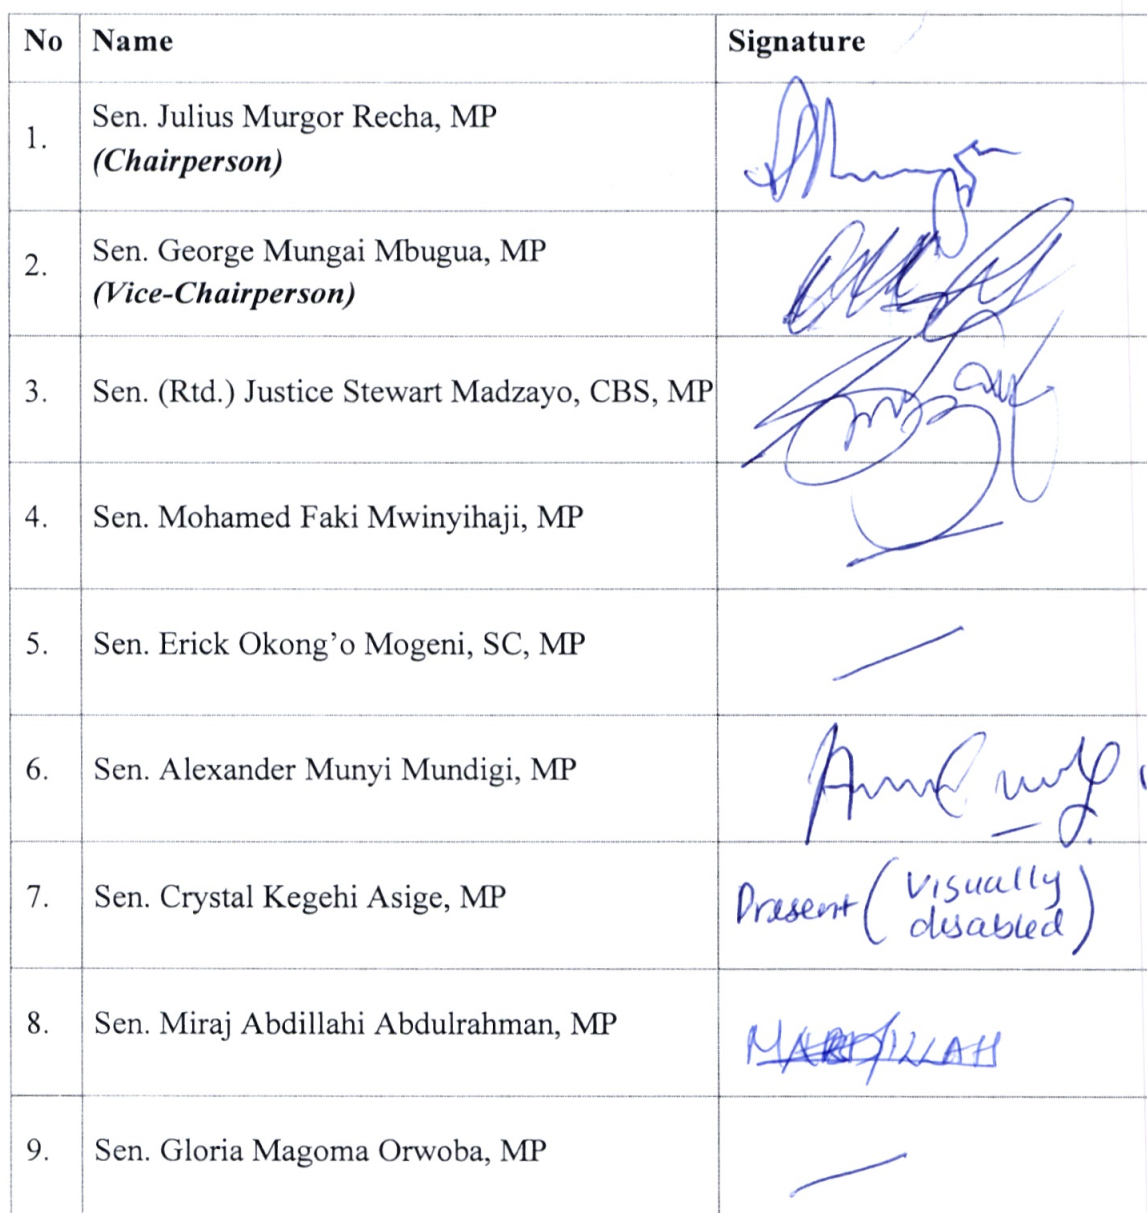 No Name Signature
1. Sen. Julius Murgor Recha, MP
(Chairperson)
2. Sen. George Mungai Mbugua, MP
(Vice-Chairperson)
3. Sen. (Rtd.) Justice Stewart Madzayo, CBS, MP
4. Sen. Mohamed Faki Mwinyihaji, MP
5. Sen. Erick Okong’o Mogeni, SC, MP
6. Sen. Alexander Munyi Mundigi, MP
7. Sen. Crystal Kegehi Asige, MP Present (visually
disabled)
8. Sen. Miraj Abdillahi Abdulrahman, MP
9. Sen. Gloria Magoma Orwoba, MP